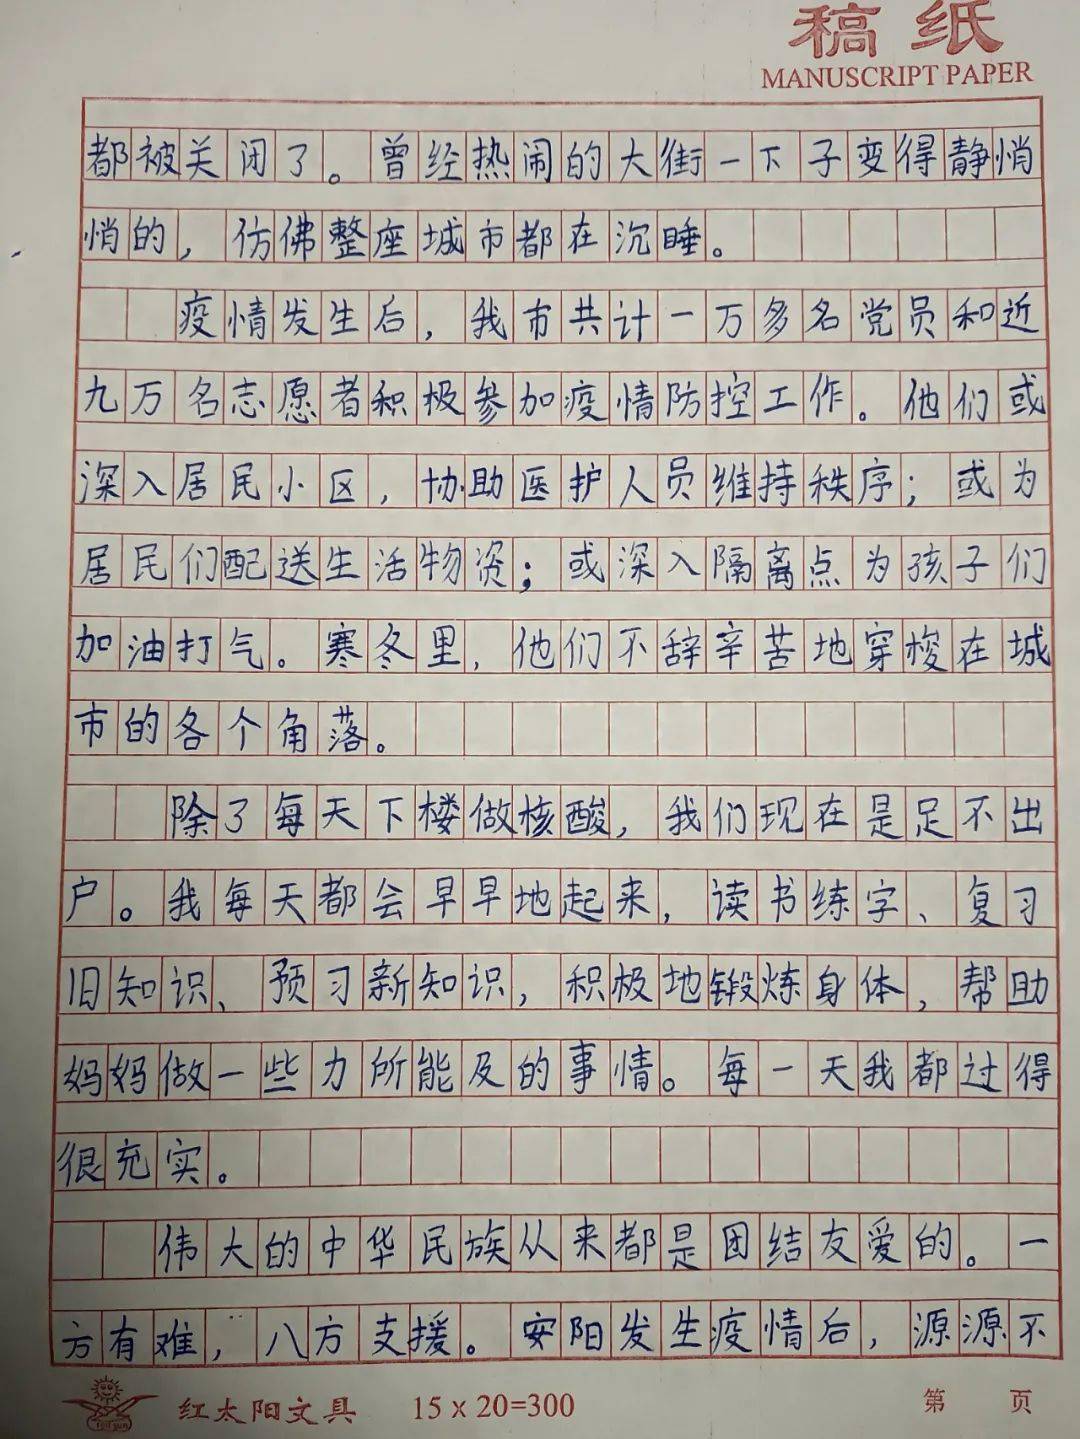 稿纸
MANUSCRIPT PAPER
都被关闭了。曾经热闹的大街一下子变得静悄
悄的，仿佛整座城市都在沉睡。
疫情发生后，我市共计一万多名党员和近
九万名志愿者积极参加疫情防控工作。他们或
深入居民小区，协助医护人员维持秩序；或为
居民们配送生活物资；或深入隔离点为孩子们
加油打气。寒冬里，他们不辞辛苦地穿梭在城
市的各个角落。
除了每天下楼做核酸，我们现在是足不出
户。我每天都会早早地起来，读书练字、复习
旧知识、预习新知识，积极地锻炼身体，帮助
妈妈做一些力所能及的事情。每一天我都过得
很充实。
伟大的中华民族从来都是团结友爱的。一
方有难，八方支援。安阳发生疫情后，源源不
红太阳文具 15 x 20=300 第 页